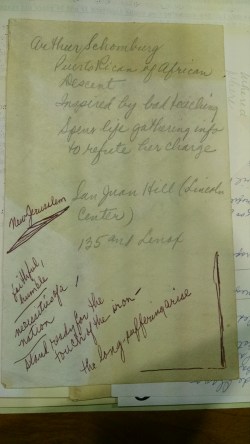 Arthur Schomburg
Puerto Rican of African
Descent
Inspired by bad teaching
Spend life gathering info
to refute her charge
San Juan Hill (Lincoln
Center)
135 and Lenox
New Jerusalem
faithful,
humble
necessities of a
nation
stand ready for the
touch of the iron-
the long-suffering arise